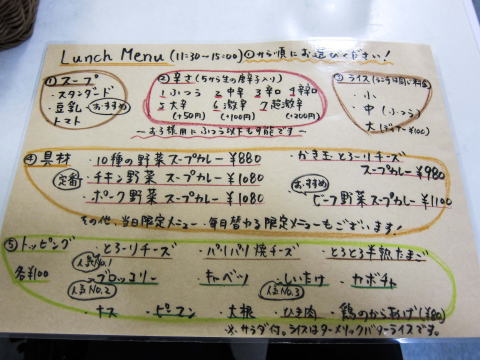 Lunch Menu (11:30~15:00) ①から順にお選びください!
①スープ
・スタンダード
・豆乳 おすすめ
・トマト
②辛さ(5から生の唐辛子入り)
1.ふつう 2.中辛 3.辛口 4.特辛口
5.大辛 6.激辛 7.超激辛
(+50円) (+100円) (+200円)
~お子様用にふつう以下も可能です~
③ライス
・小
・中(ふつう)
・大
④具材
定番
・10種の野菜スープカレー ¥880
・チキン野菜スープカレー ¥1080
・ポーク野菜スープカレー ¥1080
・かき玉とろ~りチーズ
スープカレー ¥980
おすすめ
・ビーフ野菜スープカレー ¥1100
その他、当日限定メニュー・毎日替わる限定メニューもございます!
⑤トッピング
各¥100
・とろーりチーズ ・パリパリ焼チーズ ・とろとろ半熟たまご
人気No.1
・ブロッコリー ・キャベツ ・しいたけ ・カボチャ
人気No.2 人気No.3
・ナス ・ピーマン ・大根 ・ひき肉 ・鶏のからあげ(¥80)
※サラダ付。ライスはターメリックバターライスです。